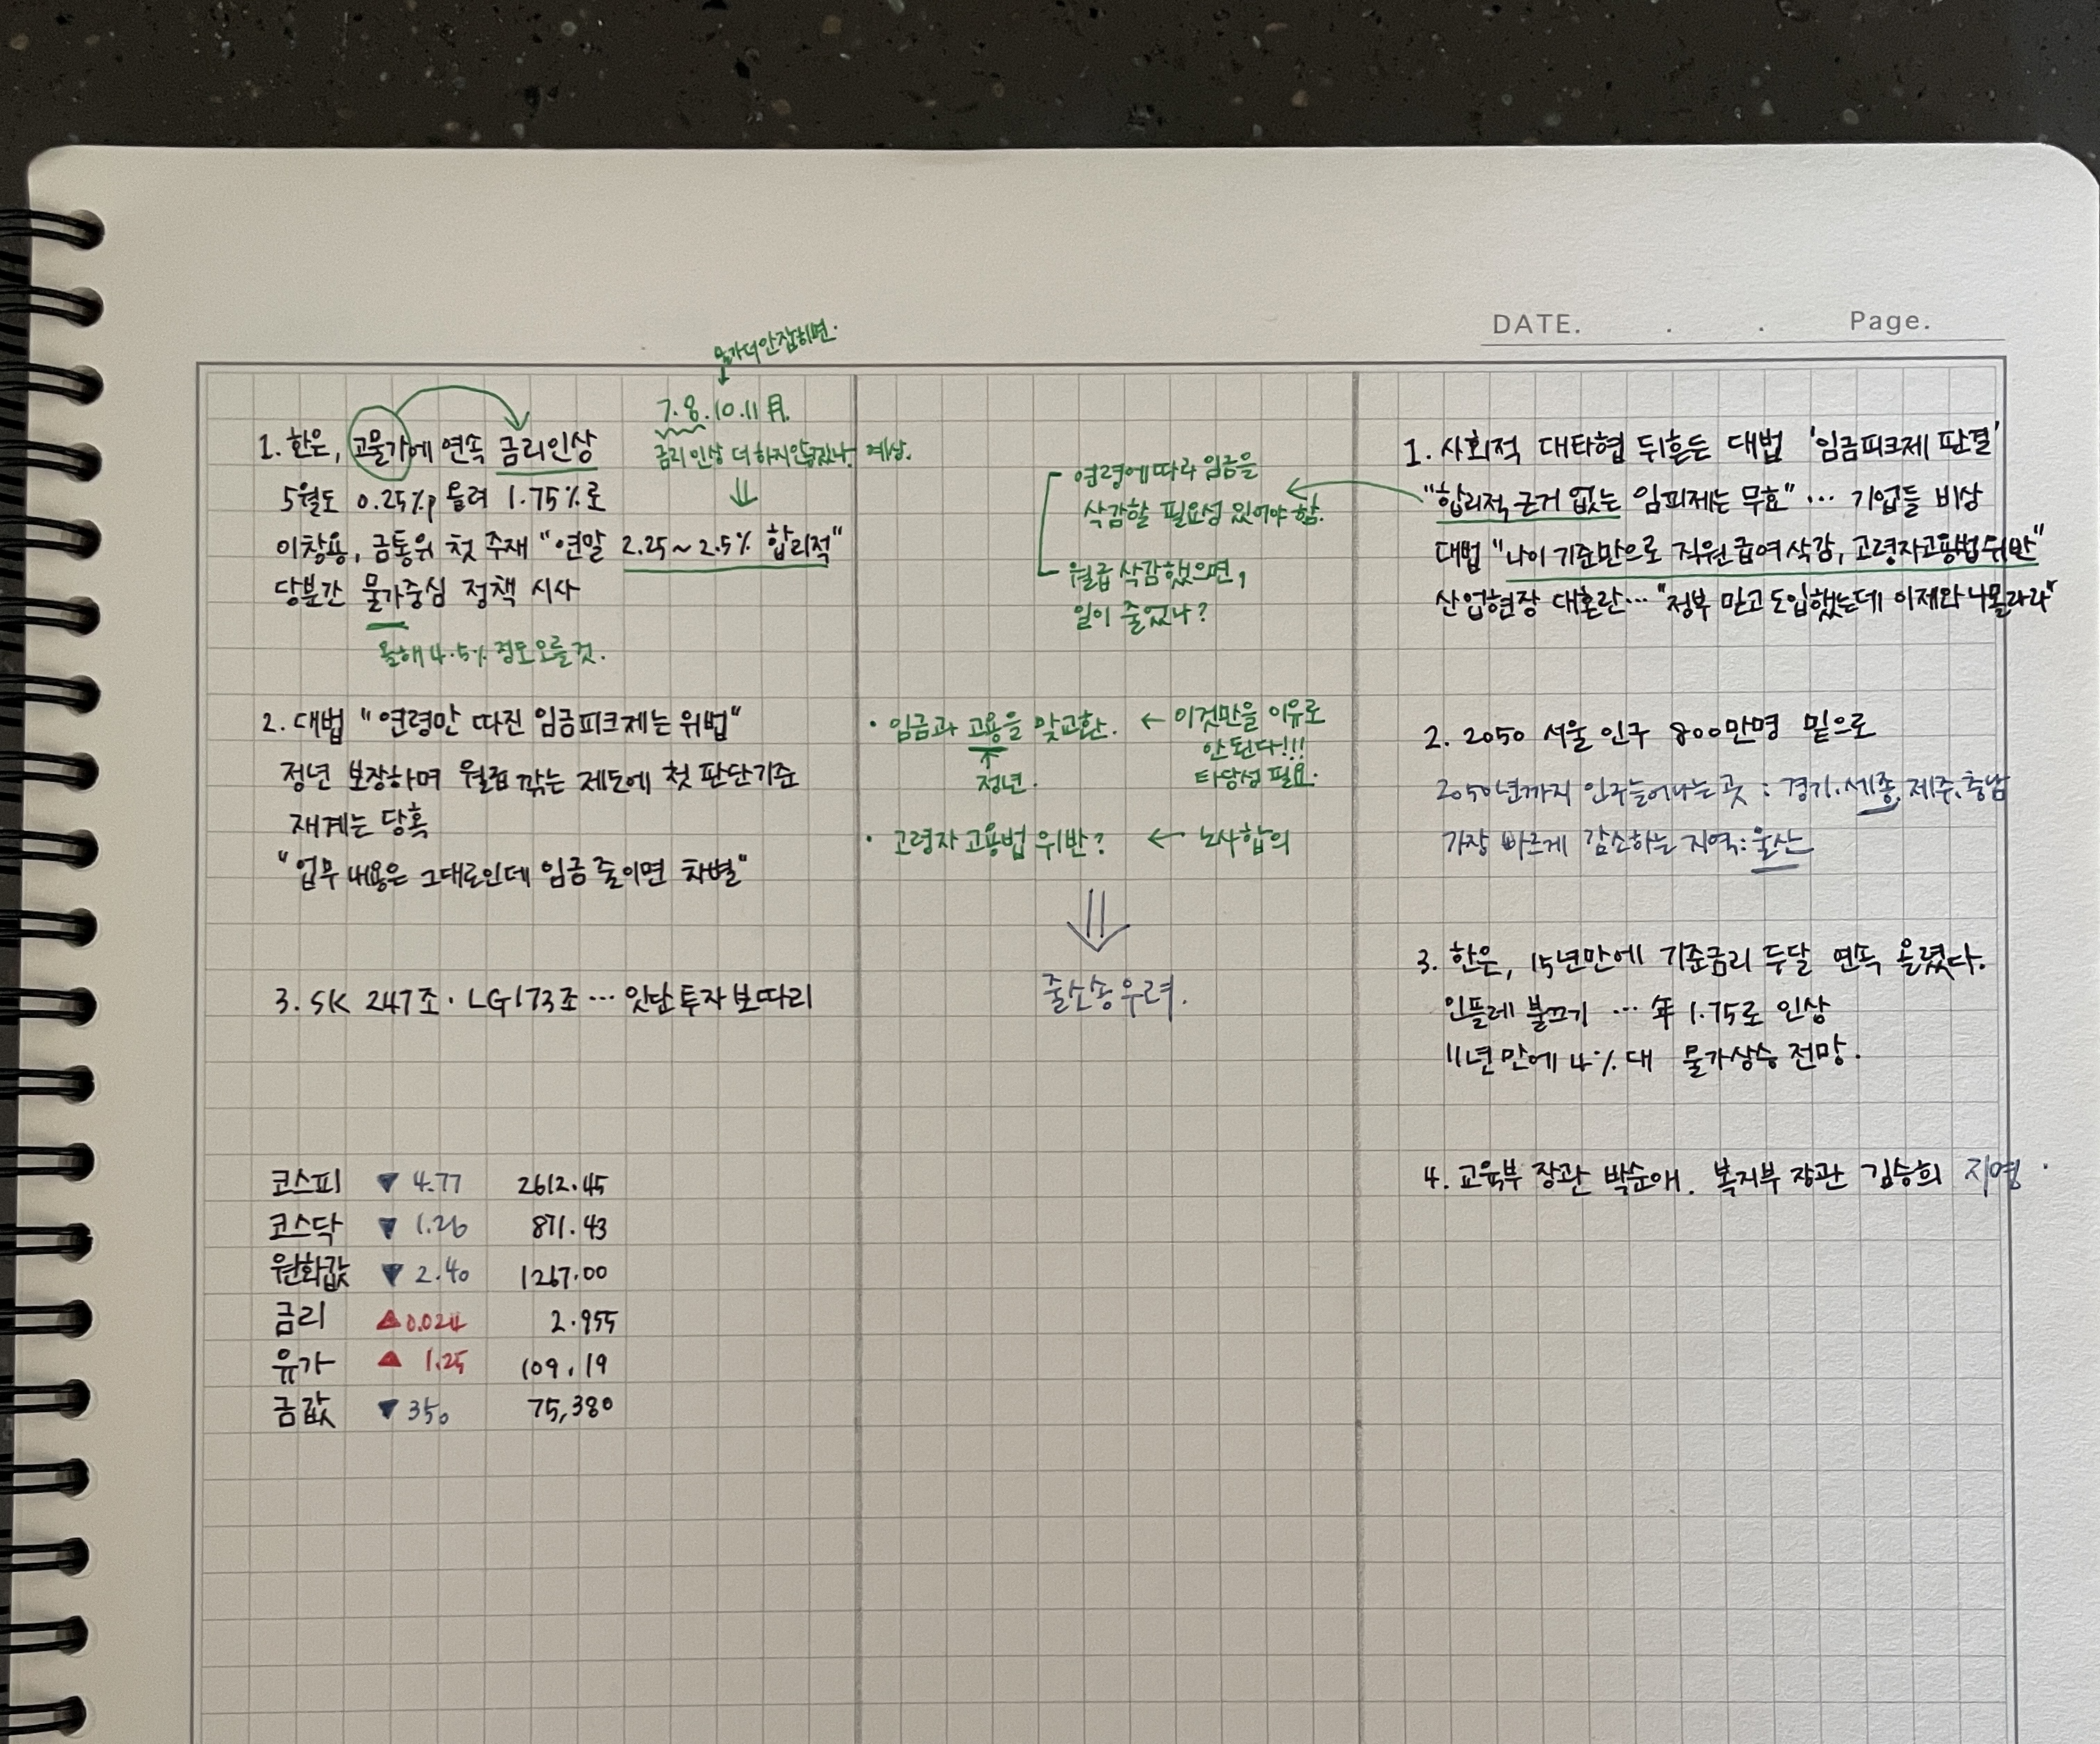 DATE. . . Page.
물가 더 안잡히면.
7. 8. 10. 11 月.
금리인상 더 하지않겠나 예상.
1. 한은, 고물가에 연속 금리인상
5월도 0.25%p 올려 1.75%로
이창용, 금통위 첫 주재 "연말 2.25~2.5% 합리적"
당분간 물가중심 정책 시사
올해 4.5% 정도 오를 것.
2. 대법 "연령만 따진 임금피크제는 위법"
정년 보장하며 월급 깎는 제도에 첫 판단기준
재계는 당혹
"업무 내용은 그대로인데 임금 줄이면 차별"
3. SK 247조 · LG 173조 … 잇단 투자 보따리
코스피 ▼ 4.77 2612.45
코스닥 ▼ 1.26 871.43
원화값 ▼ 2.40 1267.00
금리 ▲ 0.024 2.955
유가 ▲ 1.25 109.19
금값 ▼ 350 75,380
연령에 따라 임금을
삭감할 필요성 있어야 함.
월급 삭감했으면,
일이 줄었나?
· 임금과 고용을 맞교환. ← 이것만을 이유로
안된다!!!
정년. 타당성 필요.
· 고령자 고용법 위반? ← 노사합의
줄소송 우려.
1. 사회적 대타협 뒤흔든 대법 '임금피크제 판결'
"합리적 근거 없는 임피제는 무효" … 기업들 비상
대법 "나이 기준만으로 직원 급여 삭감, 고령자고용법 위반"
산업현장 대혼란… "정부 믿고 도입했는데 이제와 나몰라라"
2. 2050 서울 인구 800만명 밑으로
2050년까지 인구늘어나는 곳 : 경기. 세종. 제주. 충남
가장 빠르게 감소하는 지역: 울산
3. 한은, 15년만에 기준금리 두달 연속 올렸다.
인플레 불끄기 … 年 1.75로 인상
11년 만에 4%대 물가상승 전망.
4. 교육부 장관 박순애. 복지부 장관 김승희 지명.